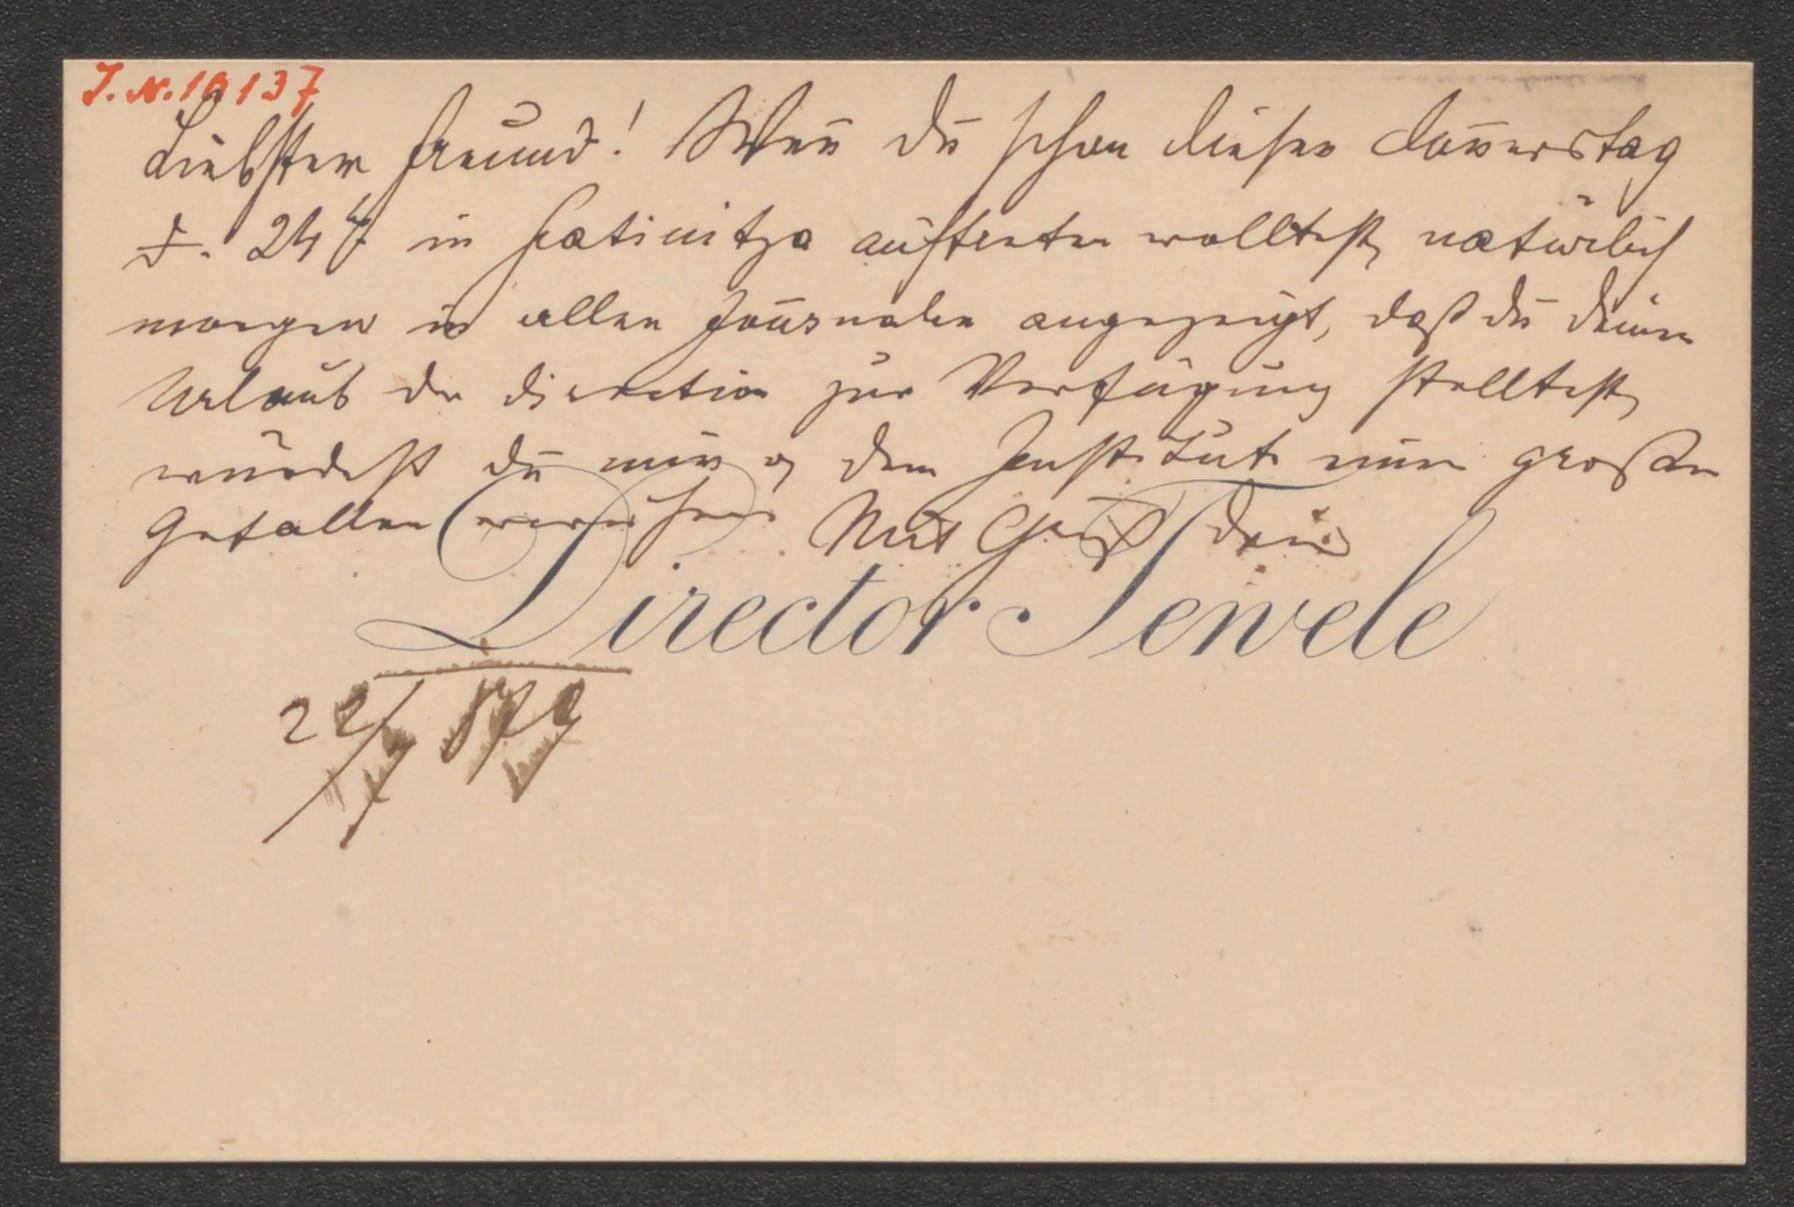 J.N. 19137
Liebster Freund! Wen̄ du schon diesen Don̄erstag
d. 24t in Fatinitza auftreten wolltest, natürlich
morgen in allen Journalen angezeigt, daß du deinen
Urlaub der Direction zur Verfügung stelltest,
würdest du mir u dem Institut einen großen
Gefallen erweisen. Mit Gruß dein
Director Tewele
22/7 879